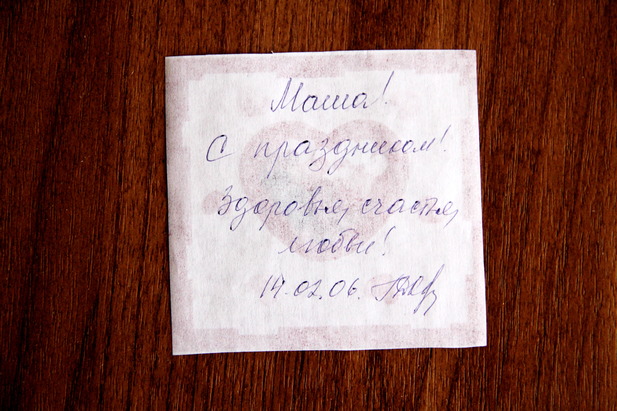 Маша!
С праздником!
Здоровья, счастья,
любви!
14.02.06.